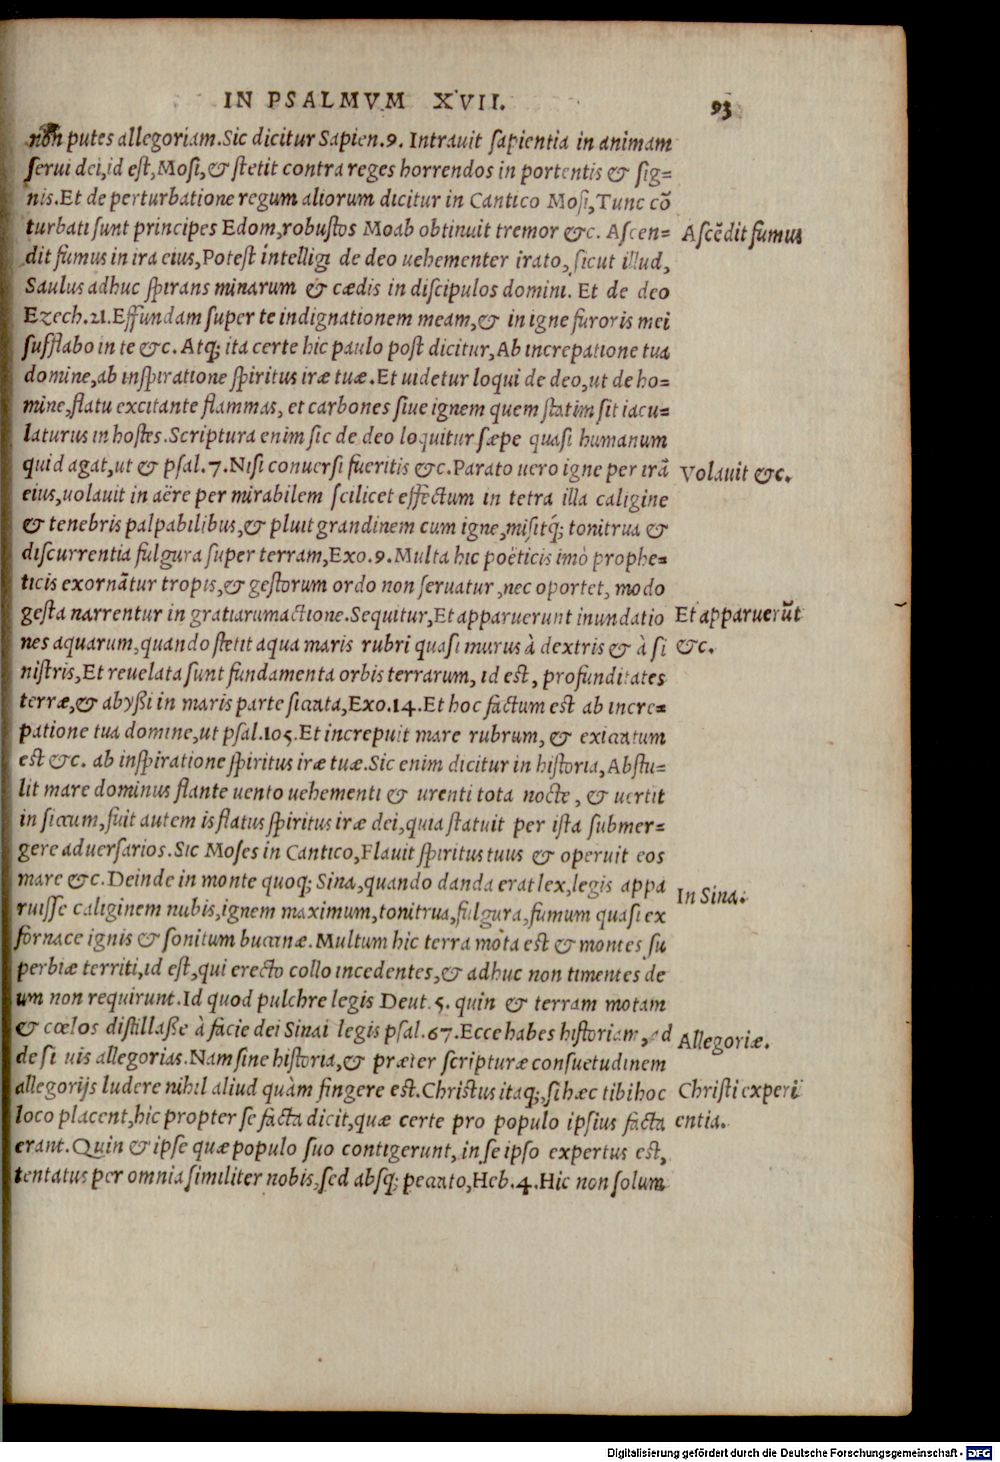 IN PSALMVM XVII. 93
non putes allegoriam. Sic dicitur Sapien. 9. Intrauit sapientia in animam
serui dei, id est, Mosi, & stetit contra reges horrendos in portentis & sig=
nis. Et de perturbatione regum aliorum dicitur in Cantico Mosi, Tunc cõ
turbati sunt principes Edom, robustos Moab obtinuit tremor &c. Ascen=
Ascẽdit fumus
dit fumus in ira eius, Potest intelligi de deo uehementer irato, sicut illud,
Saulus adhuc spirans minarum & cædis in discipulos domini. Et de deo
Ezech. 21. Effundam super te indignationem meam, & in igne furoris mei
sufflabo in te &c. Atq; ita certe hic paulo post dicitur, Ab increpatione tua
domine, ab inspiratione spiritus iræ tuæ. Et uidetur loqui de deo, ut de ho=
mine, flatu excitante flammas, et carbones siue ignem quem statim sit iacu=
laturus in hostes. Scriptura enim sic de deo loquitur sæpe quasi humanum
quid agat, ut & psal. 7. Nisi conuersi fueritis &c. Parato uero igne per irã
Volauit &c.
eius, uolauit in aëre per mirabilem scilicet effectum in tetra illa caligine
& tenebris palpabilibus, & pluit grandinem cum igne, misitq́; tonitrua &
discurrentia fulgura super terram, Exo. 9. Multa hic poëticis imò prophe=
ticis exornãtur tropis, & gestorum ordo non seruatur, nec oportet, modo
gesta narrentur in gratiarumactione. Sequitur, Et apparuerunt inundatio
Et apparuerũt
nes aquarum, quando stetit aqua maris rubri quasi murus à dextris & à si
&c.
nistris, Et reuelata sunt fundamenta orbis terrarum, id est, profunditates
terræ, & abyßi in maris parte siccata, Exo. 14. Et hoc factum est ab incre=
patione tua domine, ut psal. 105. Et increpuit mare rubrum, & exiccatum
est &c. ab inspiratione spiritus iræ tuæ. Sic enim dicitur in historia, Abstu=
lit mare dominus flante uento uehementi & urenti tota nocte, & uertit
in siccum, fuit autem is flatus spiritus iræ dei, quia statuit per ista submer=
gere aduersarios. Sic Moses in Cantico, Flauit spiritus tuus & operuit eos
mare &c. Deinde in monte quoq; Sina, quando danda erat lex, legis appa
In Sina.
ruisse caliginem nubis, ignem maximum, tonitrua, fulgura, fumum quasi ex
fornace ignis & sonitum buccinæ. Multum hic terra mota est & montes su
perbiæ territi, id est, qui erecto collo incedentes, & adhuc non timentes de
um non requirunt. Id quod pulchre legis Deut. 5. quin & terram motam
& cœlos distillaße à facie dei Sinai legis psal. 67. Ecce habes historiam, ad
Allegoriæ.
de si uis allegorias. Nam sine historia, & præter scripturæ consuetudinem
allegorijs ludere nihil aliud quàm fingere est. Christus itaq;, si hæc tibi hoc
Christi experi
loco placent, hic propter se facta dicit, quæ certe pro populo ipsius facta
entia.
erant. Quin & ipse quæ populo suo contigerunt, in se ipso expertus est,
tentatus per omnia similiter nobis, sed absq; peccato, Heb. 4. Hic non solum
Digitalisierung gefördert durch die Deutsche Forschungsgemeinschaft - DFG